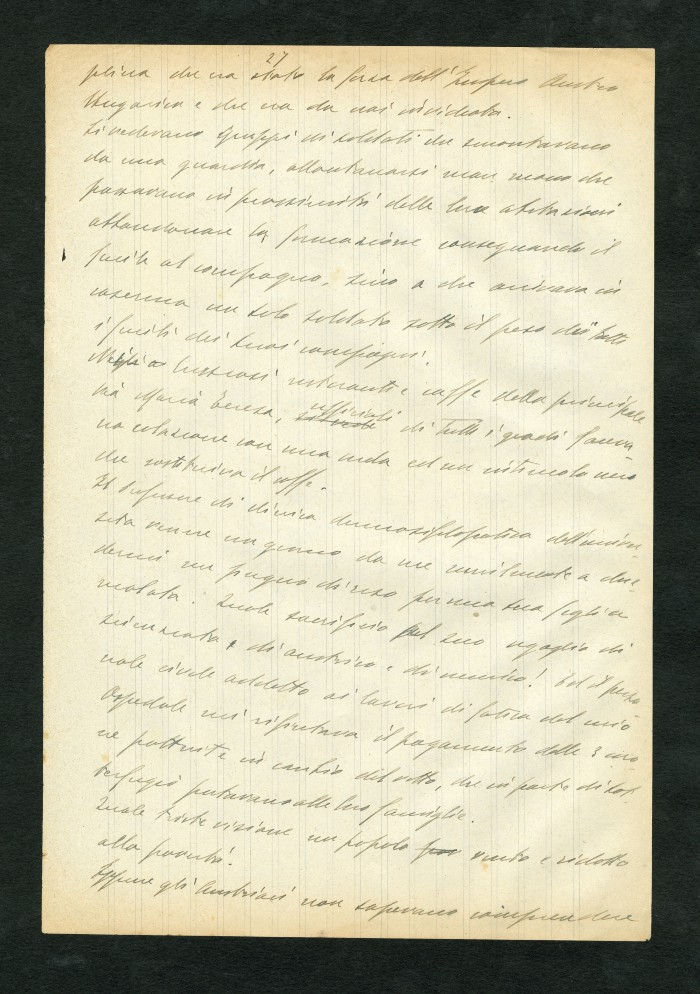 27
plina che era stata la forza dell'Impero Austro
Ungarico e che era da noi invidiata.
Si vedevano gruppi di soldati che smontavano
da una guardia, allontanarsi man mano che
passavano in prossimità delle loro abitazioni
abbandonare la formazione consegnando il
fucile al compagno, sino a che arrivava in
caserma un solo soldato sotto il peso di tutti
i fucili dei suoi compagni.
Negli lussuosi ristoranti e caffe della principale
via Maria Teresa, ufficiali di tutti i gradi faceva-
no colazione con una mela ed un intingolo nero
che sostituiva il caffe.
Il professore di clinica dermosifilopatica dell'univer-
sità venne un giorno da me umilmente a chie-
dermi un pugno di riso per una sua figlia
malata. Quale sacrificio pel suo orgoglio di
scienziato, di austriaco e di nemico! Ed il perso-
nale civile addetto ai lavori di fatica del mio
Ospedale mi rifiutava il pagamento delle 3 coro-
ne pattuite in cambio del vitto, che in parte di sot-
terfugio portavano alle loro famiglie.
Quale triste visione un popolo vinto e ridotto
alla povertà!
Eppure gli Austriaci non sapevano comprendere